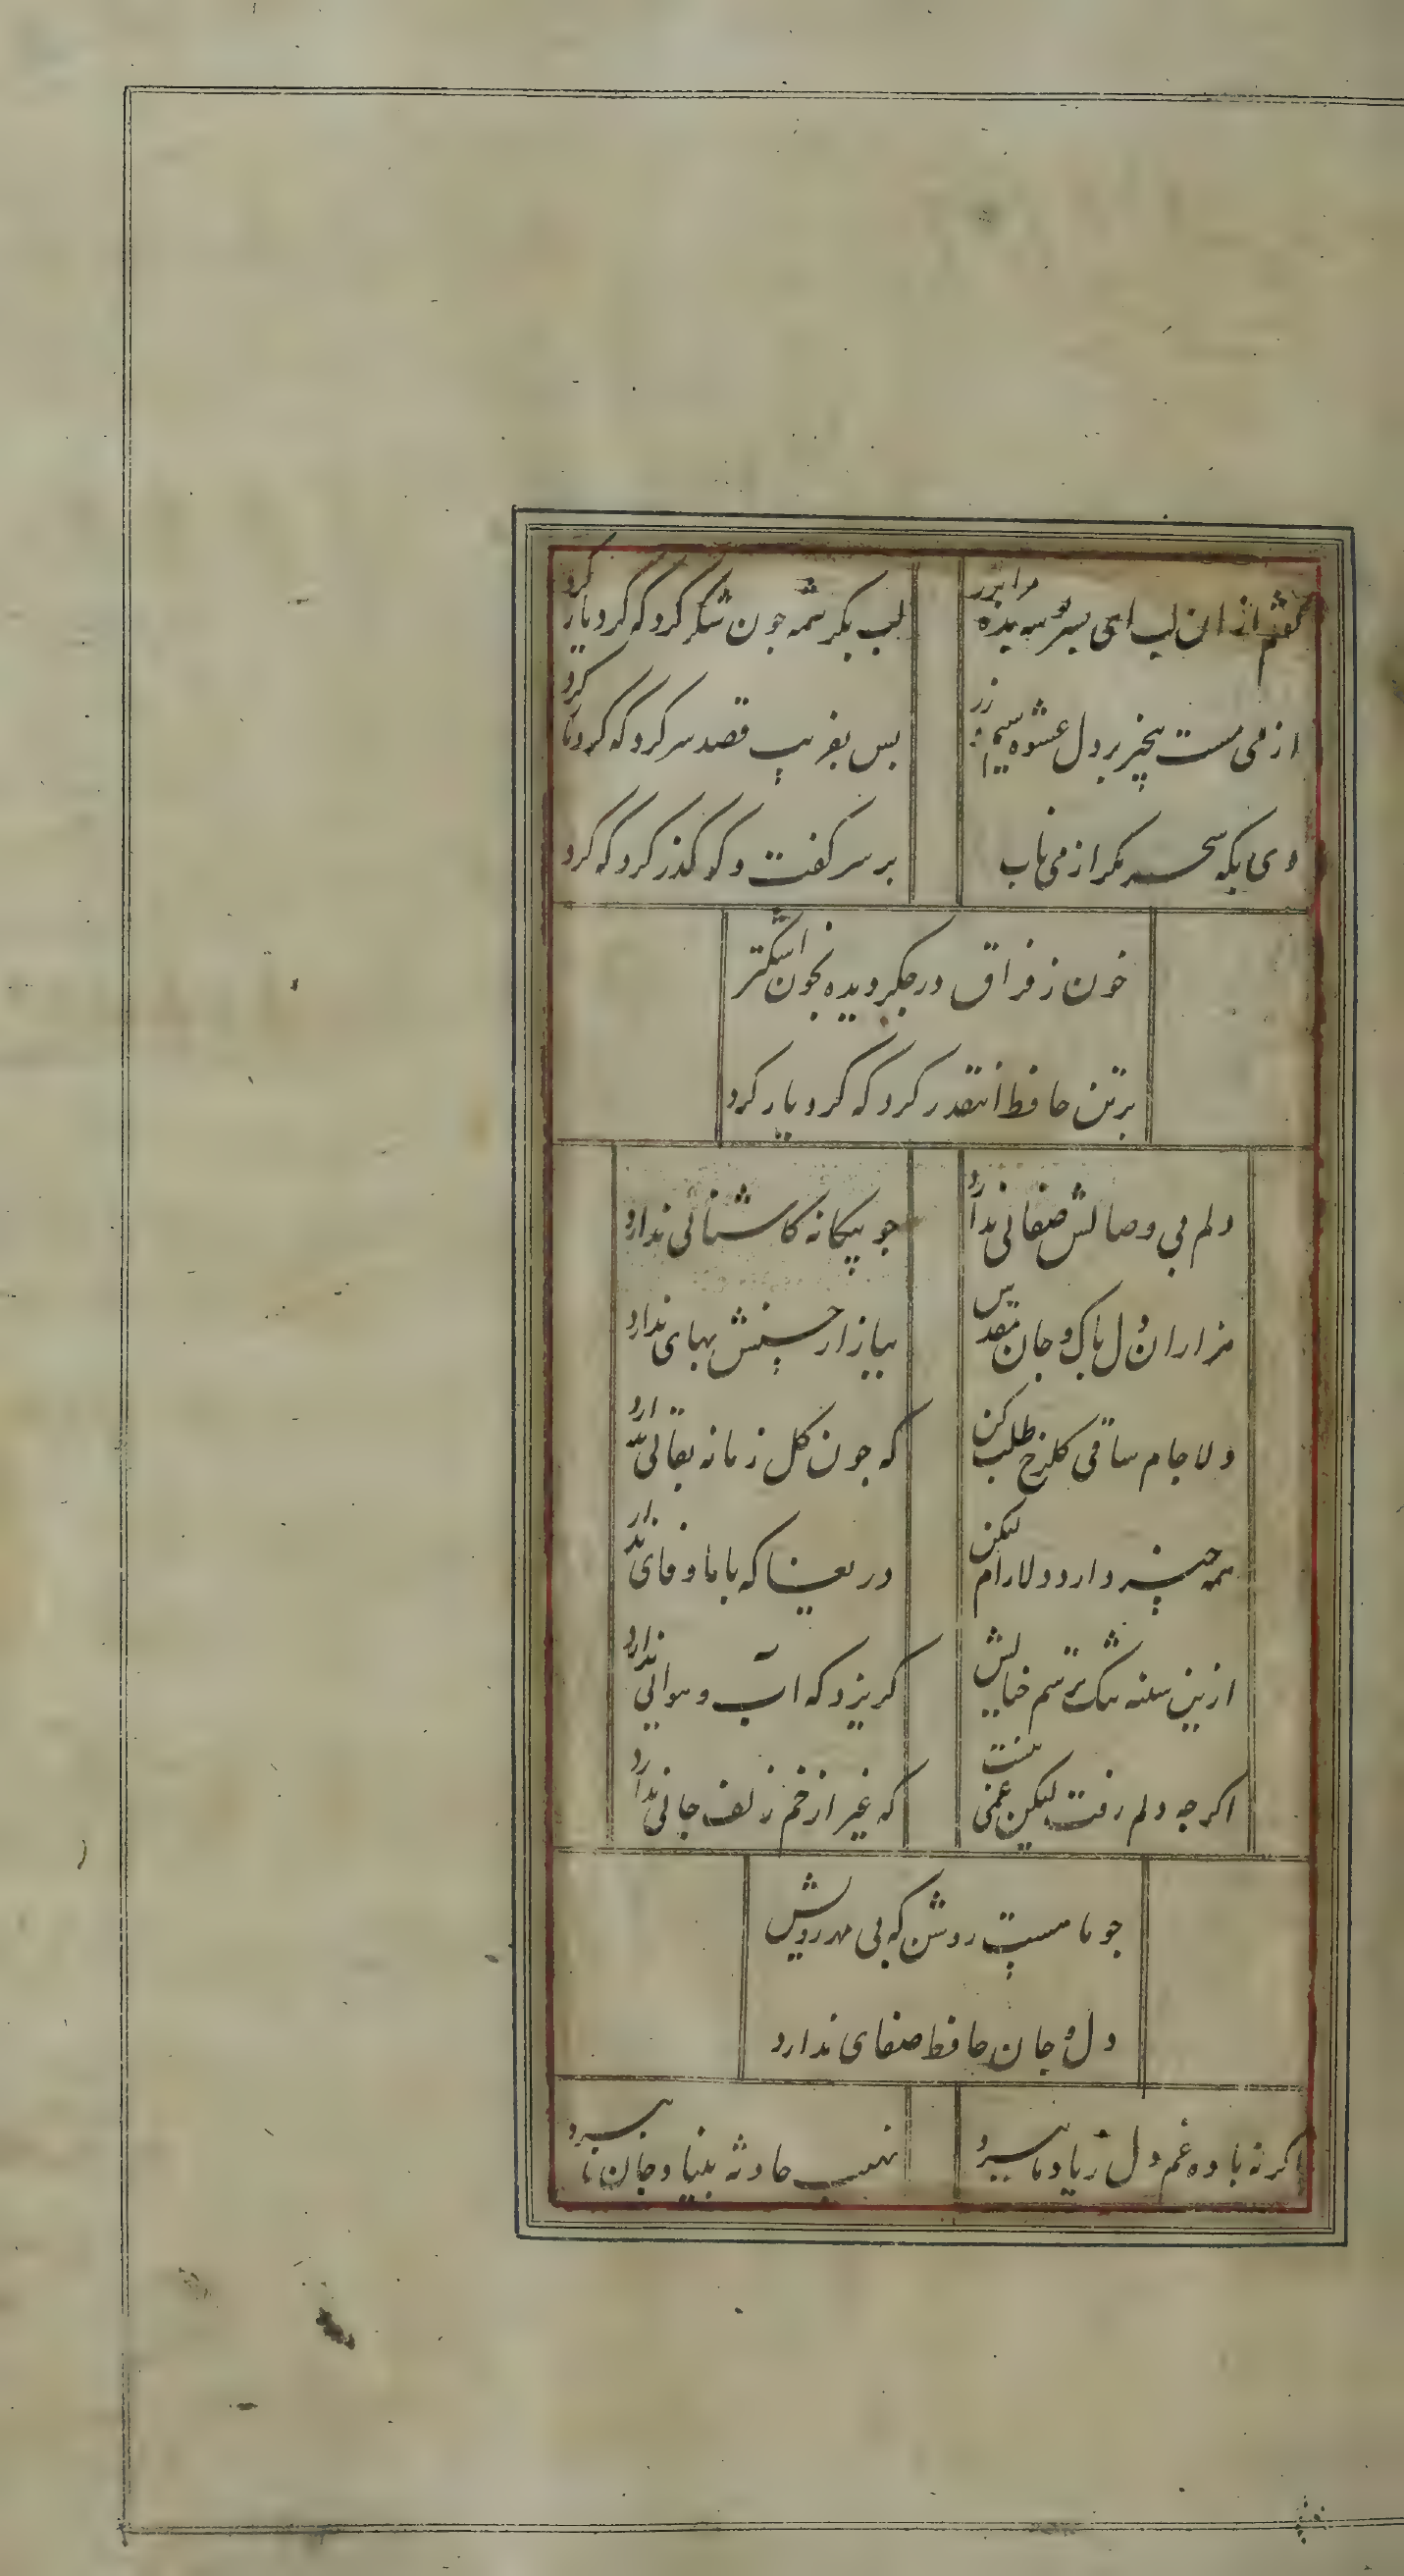 گفتم از ان لب ای پسر بوسه بده مرا بزر
لب بکرشمه جون شکر کرد که کرد یار کرد
از می مست بیخبر بر دل عشوه سیم زر
بس بفریب قصد سر کرد که کرد یار کرد
دی بکه سحر مکر از می ناب
بر سر کفت و کو کذر کرد که کرد
خون ز فراق در جکر دیده بخون اشک تر
بر تن حافظ انقدر کرد که کرد یار کرد
دلم بی وصالش صفائی ندارد
جو بیکانه کاشنائی ندارد
هزاران دل پاک و جان مقدس
ببازار حسنش بهای ندارد
دلا جام ساقی کلرخ طلب کن
که جون کل زمانه بقائی ندارد
همه جیز دارد دلارام لیکن
دریغا که با ما وفای ندارد
ازین سینه تنک ترسم خیالش
کریزد که اب و هوائی ندارد
اکرجه دلم رفت لیکن غمی نیست
که غیر از خم زلف جائی ندارد
جو ماهست روشن که بی مهر رویش
دل و جان حافظ صفای ندارد
اکر نه باده غم دل زیاد ما ببرد
نهیب حادثه بنیاد جان ما ببرد